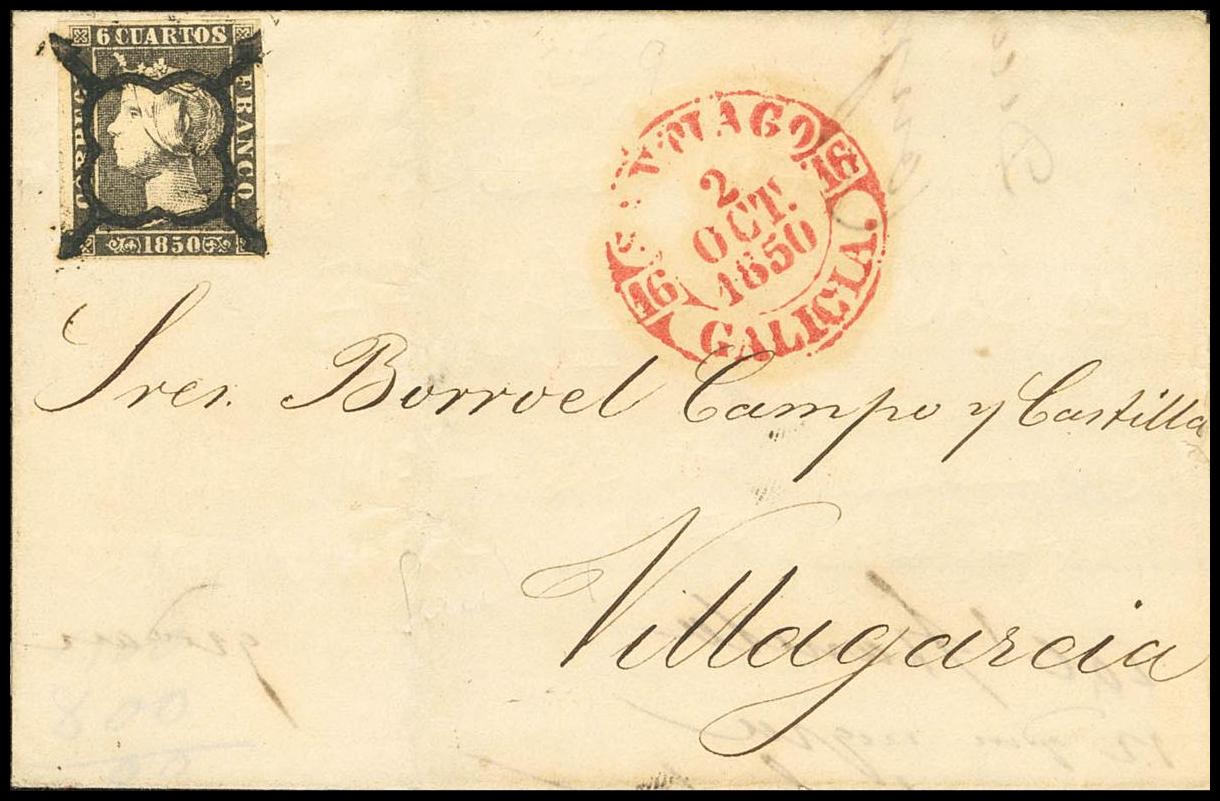 6 CUARTOS
FRANCO
1850
16
2
OCT.
1850
16
GALICIA.
Sres. Borroel Campo y Castilla
Villagarcia